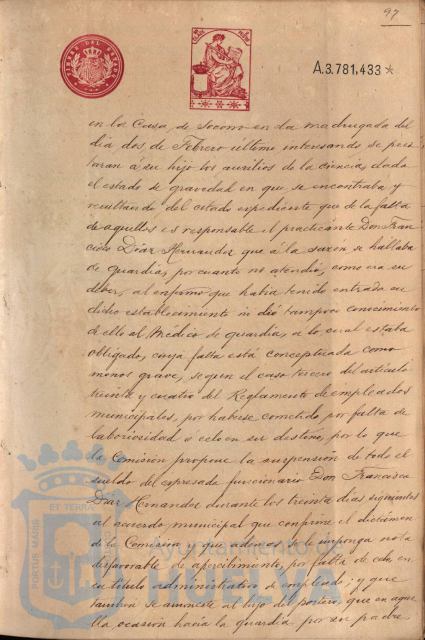 97
TIMBRE DEL ESTADO
A.3.781,433*
en la Casa de Socorro en la madrugada del
dia dos de Febrero ultimo interesando se pres
taran á su hijo los auxilios de la ciencia, dada
el estado de gravedad en que se encontraba y
resultando del citado expediente que de la falta
de aquellos es responsable el practicante Don Fran
cisco Diaz Hernandez que á la sazón se hallaba
de guardia, por cuanto no atendió, como era su
deber, al enfermo que habia tenido entrada en
dicho establecimiento ni dió tampoco conocimiento
de ello al Médico de guardia, á lo cual estaba
obligado, cuya falta está conceptuada como
menos grave, segun el caso tercero del articulo
treinta y cuatro del Reglamento de empleados
municipales, por haberse cometido por falta de
laboriosidad ó celo en su destino, por lo que
la Comisión propone la suspensión de todo el
sueldo del expresado funcionario Don Francisco
Diaz Hernandez durante los treinta dias siguientes
al acuerdo municipal que confirme el dictamen
de la Comision y que ademas se le imponga nota
desfavorable de apercibimiento, por falta de celo en
su titulo administrativo de empleado; y que
tambien se amoneste al hijo del portero, que en aque
lla ocasión hacia la guardia por su padre
PORTUS MARIS ET TERRAE
Ayuntamiento de
HUELVA